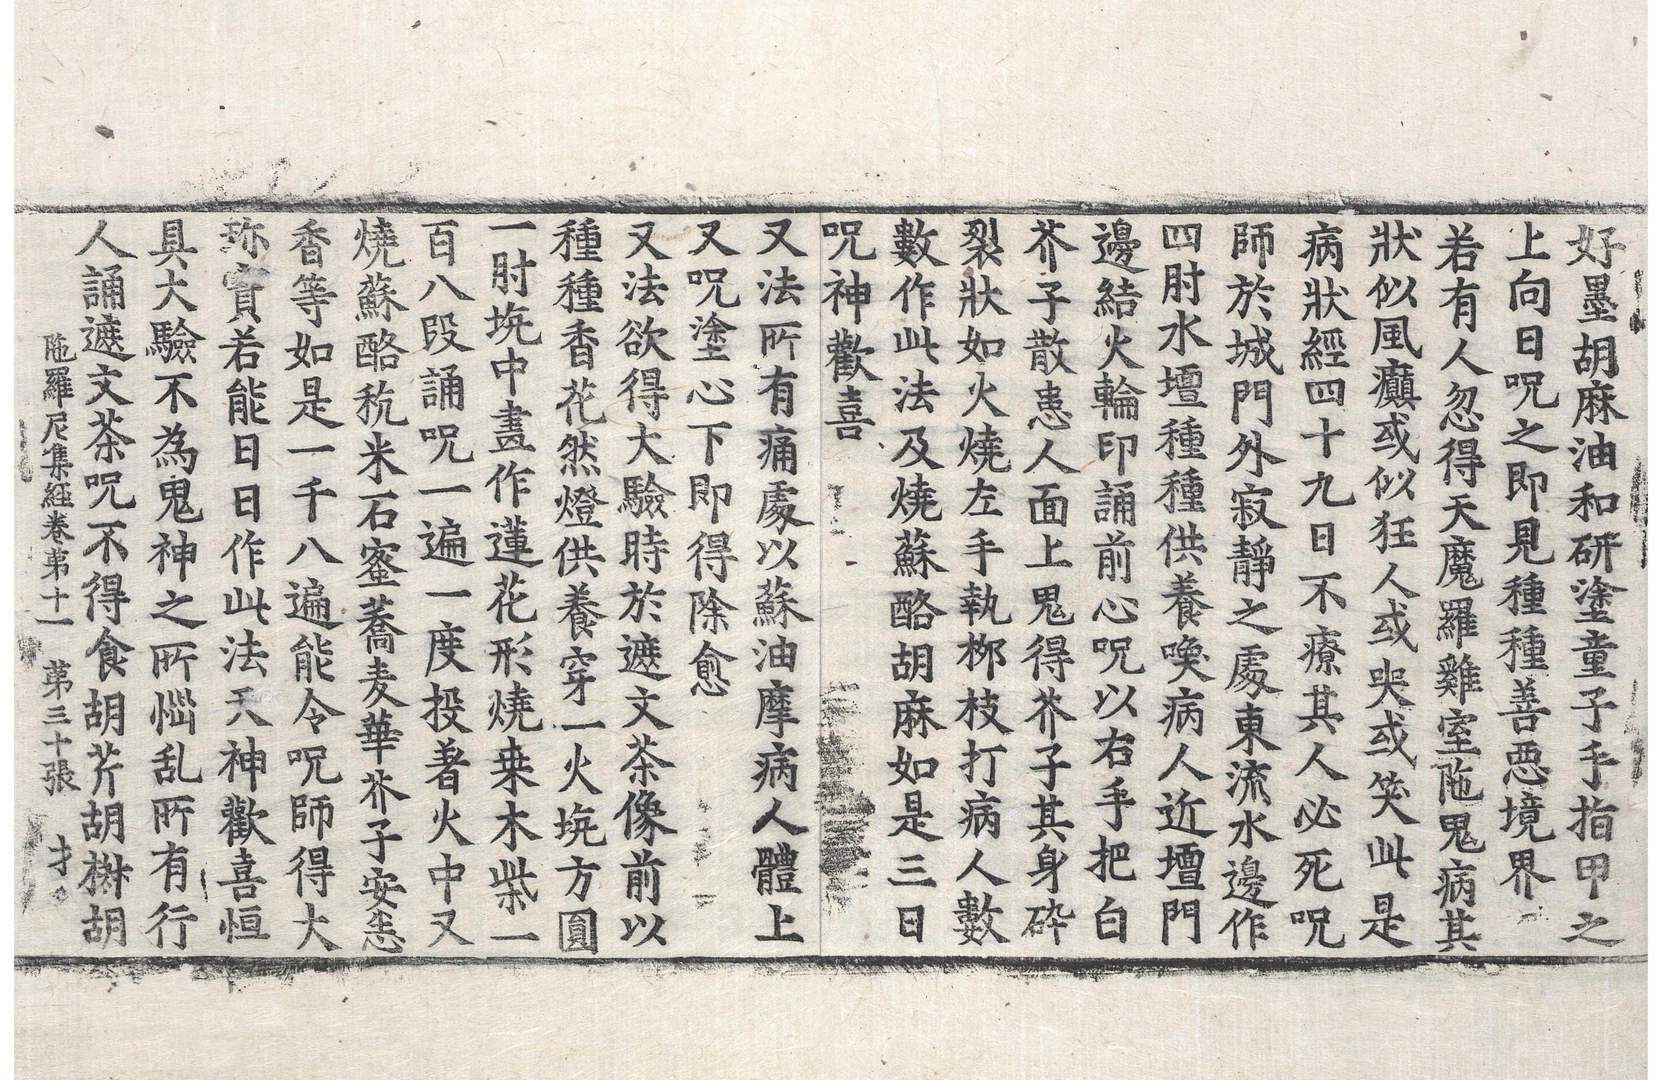 好墨胡麻油和研塗童子手指甲之
上向日呪之即見種種善惡境界
若有人忽得天魔羅雞室陁鬼病其
狀似風癲或似狂人或哭或笑此是
病狀經四十九日不療其人必死呪
師於城門外寂靜之處東流水邊作
四肘水壇種種供養喚病人近壇門
邊結火輪印誦前心呪以右手把白
芥子散患人面上鬼得芥子其身碎
裂狀如火燒左手執栁枝打病人數
數作此法及燒蘇酪胡麻如是三日
呪神歡喜
又法所有痛處以蘇油摩病人體上
又呪塗心下即得除愈
又法欲得大驗時於遮文茶像前以
種種香花然燈供養穿一火坑方圓
一肘坑中畫作蓮花形燒桒木柴一
百八段誦呪一遍一度投著火中又
燒蘇酪秔米石蜜蕎麦華芥子安悉
香等如是一千八遍能令呪師得大
珎寳若能日日作此法天神歡喜恒
具大驗不為鬼神之所惱乱所有行
人誦遮文茶呪不得食胡芹胡樹胡
陁羅尼集經卷苐十一 苐三十張 才